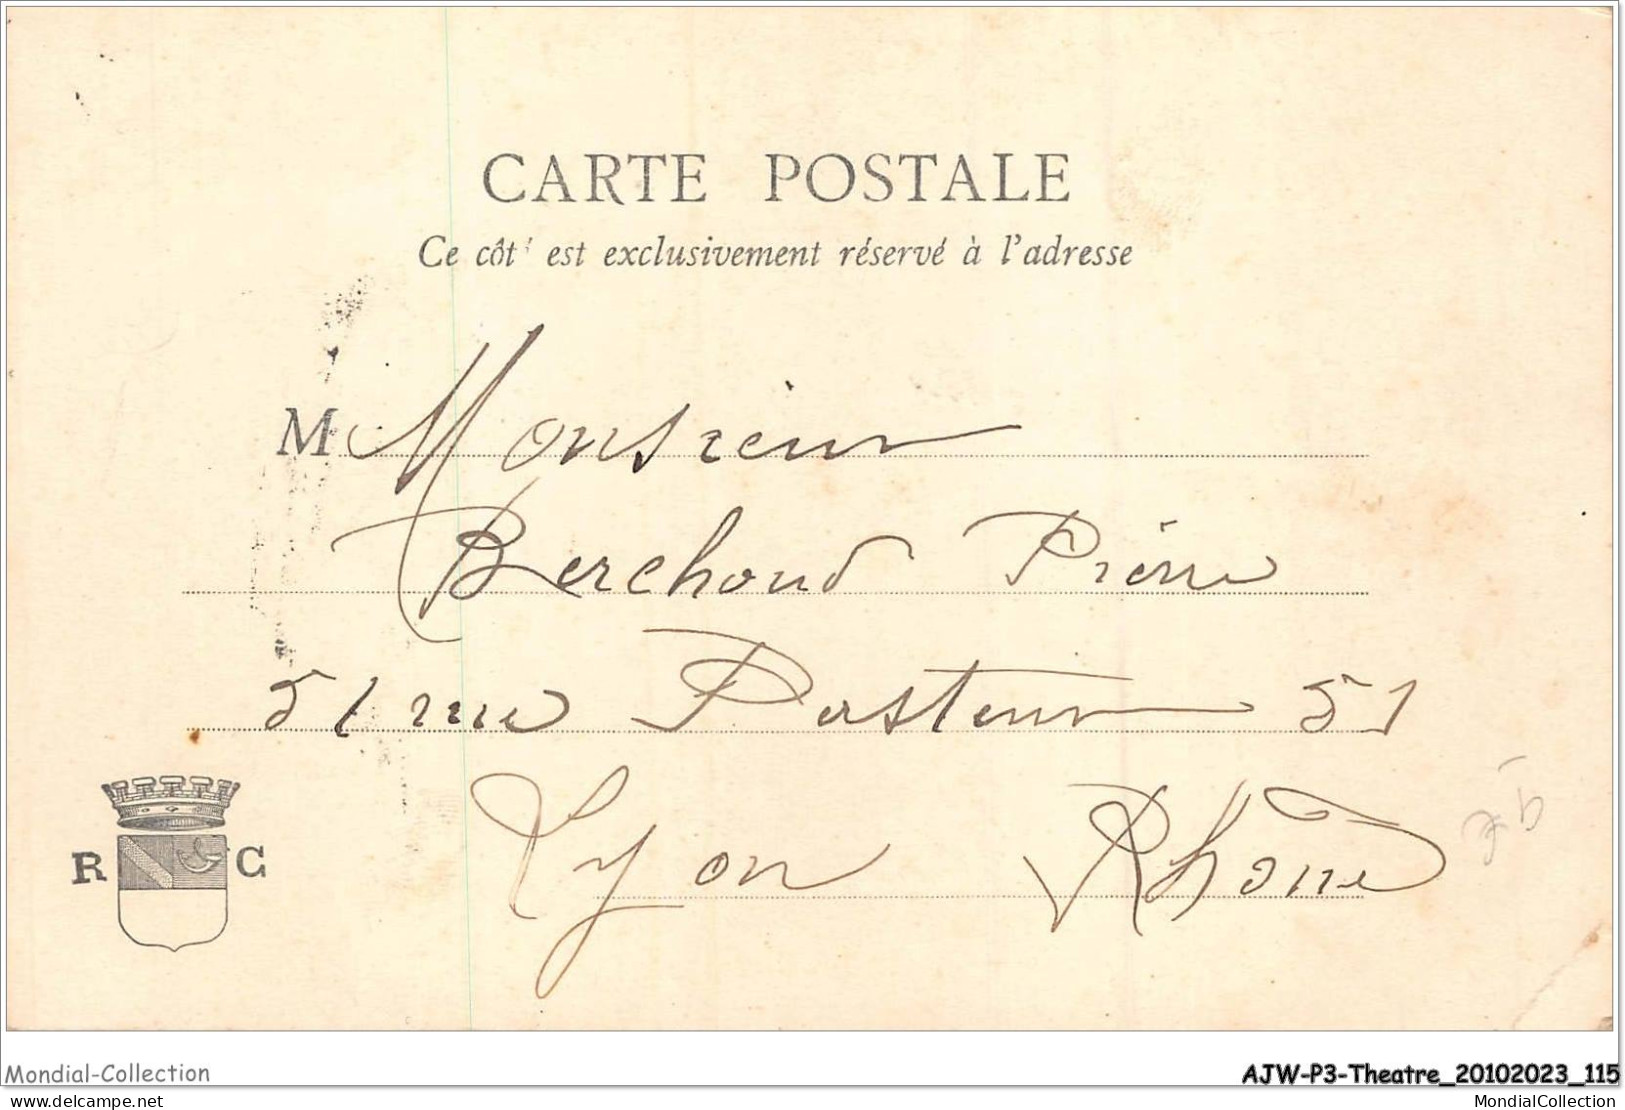 CARTE POSTALE
Ce côt' est exclusivement réservé à l'adresse
M Monsieur
Berchoud Pierre
51 rue Pasteur 51
Lyon Rhône
R C
Mondial-Collection
AJW-P3-Theatre_20102023_115
delcampe.net
MondialCollection